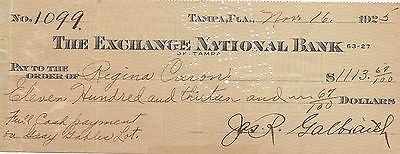 No. 1099. TAMPA, FLA., Nov. 16, 1925
THE EXCHANGE NATIONAL BANK 63-27
OF TAMPA
PAY TO THE
ORDER OF Regina $1113 67/100
Eleven Hundred and thirteen and 67/100 DOLLARS
Full Cash payment
on Gray Gables Lot. Jas. R. Galbraith